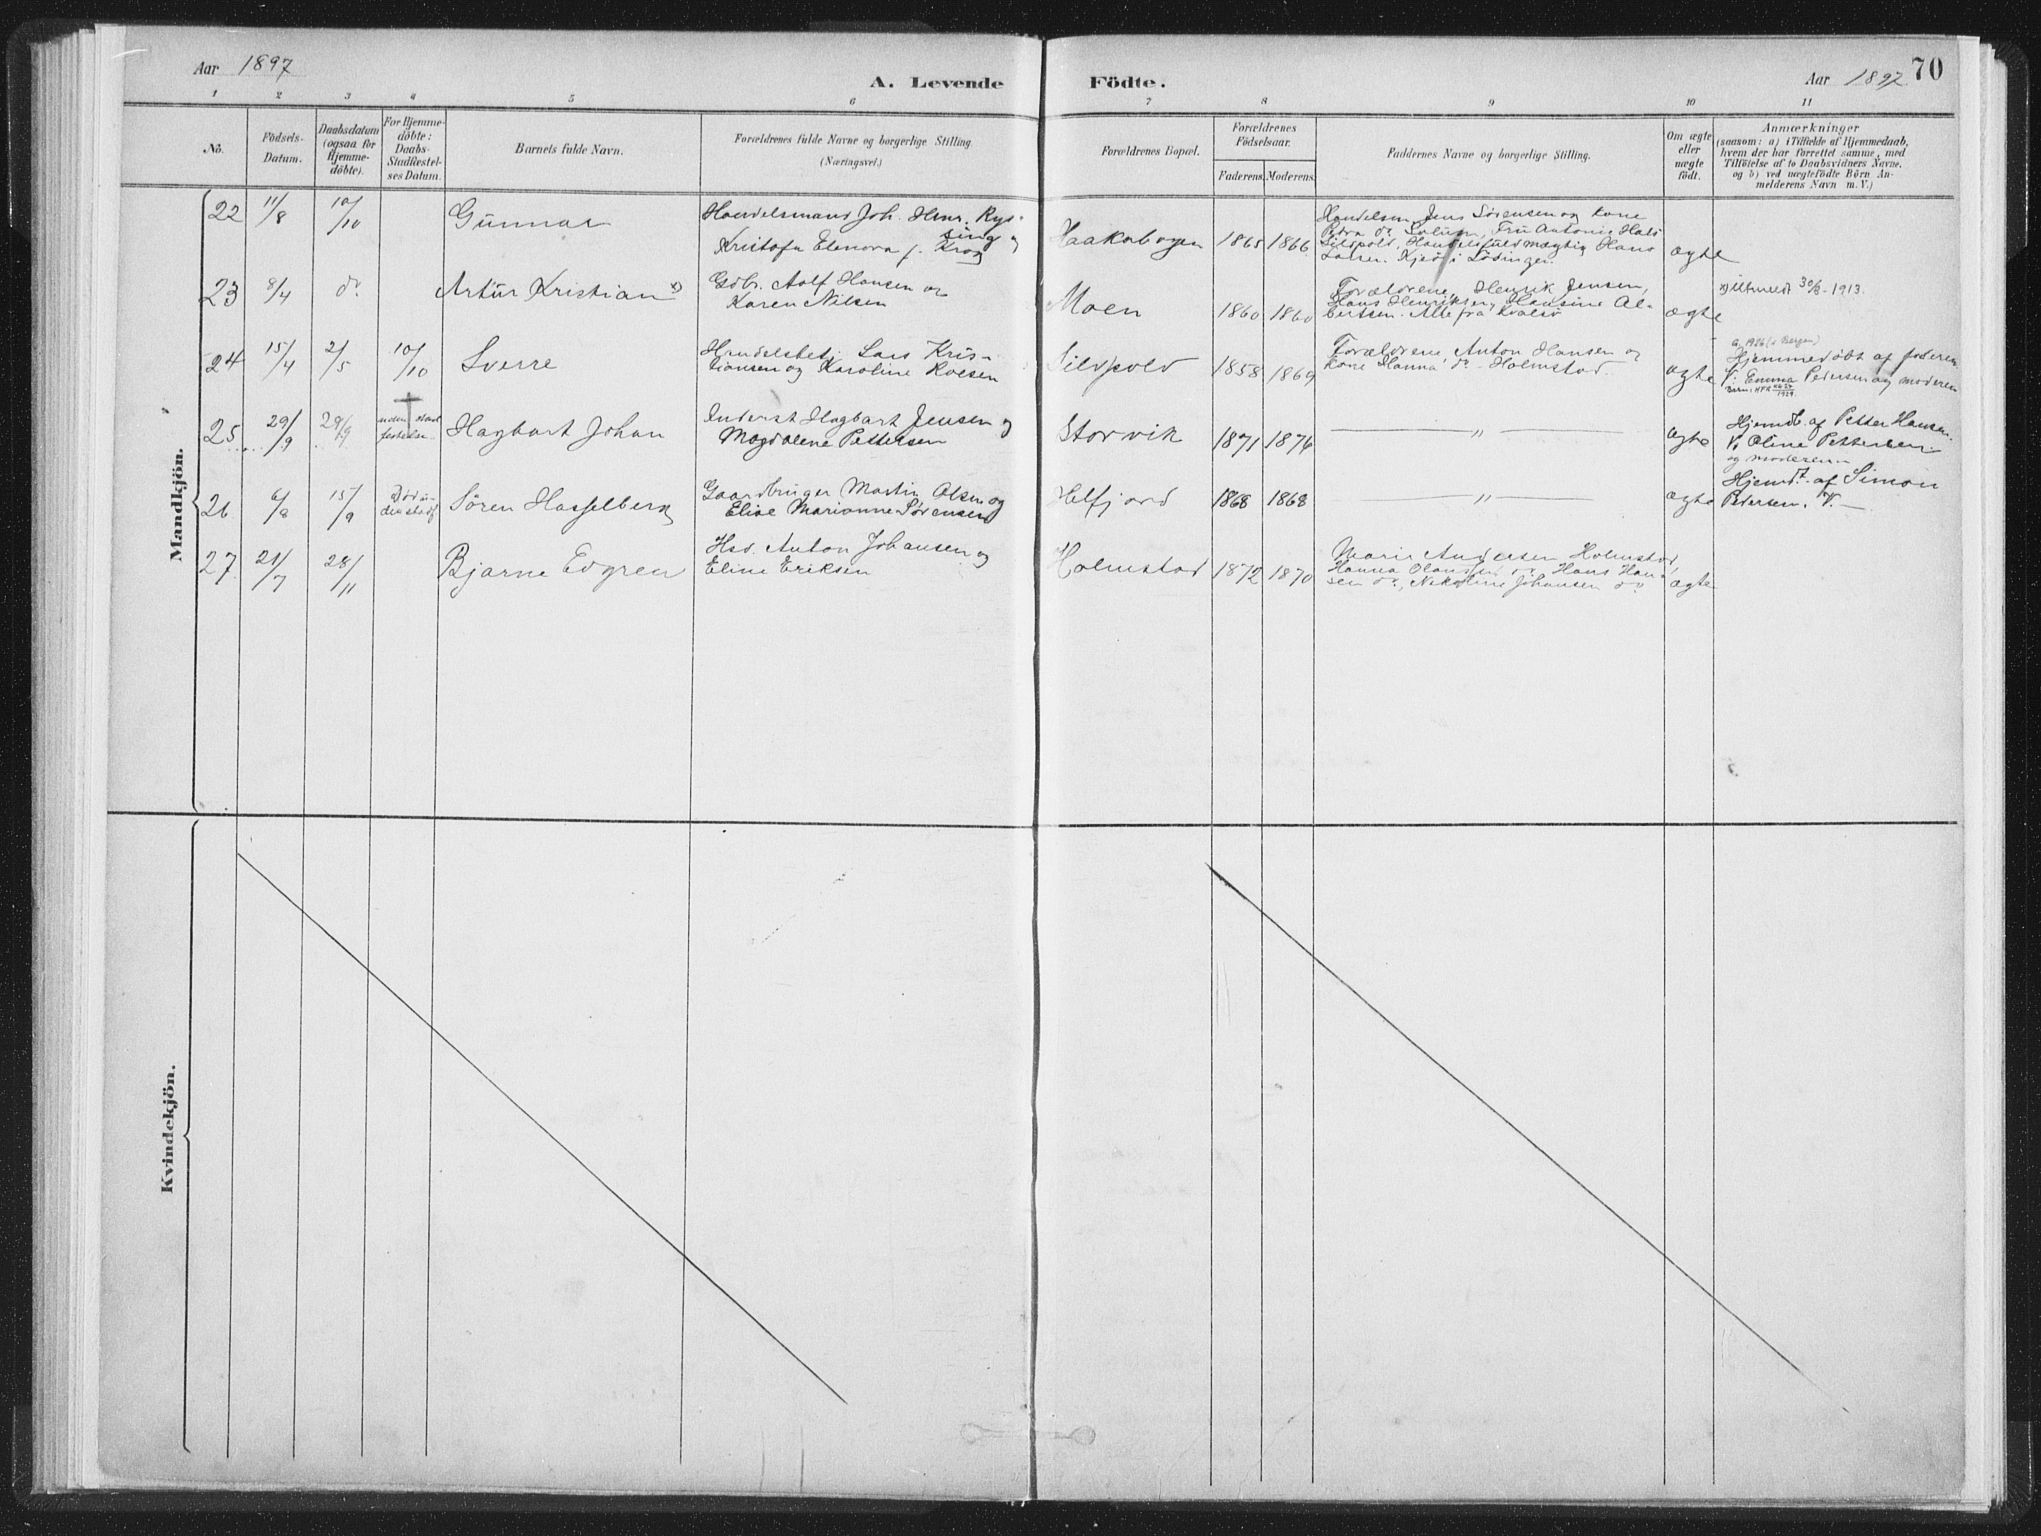 Aar 1897
A. Levende
Födte.
Aar 1897
70
1 2 3 4 5 6 7 8 9 10 11
No.
Födsels-
Datum.
Daabsdatum
(ogsaa for
Hjemme-
döbte).
For Hjemme-
döbte:
Daabs-
Stadfæstel-
ses Datum.
Barnets fulde Navn.
Forældrenes fulde Navne og borgerlige Stilling
(Næringsvei.)
Forældrenes Bopæl.
Forældrenes
Födselsaar.
Faderens. Moderens.
Faddernes Navne og borgerlige Stilling.
Om ægte
eller
uægte
födt.
Anmærkninger
(saasom: a) i Tilfælde af Hjemmedaab,
hvem der har forrettet samme, med
Tilföielse af to Daabsvidners Navne.
og b) ved uægtefödte Börn An-
melderens Navn m. V.)
Mandkjön.
22 11/8 10/10
Gunnar
Handelsmand Joh. Henr. Rys-
sing og
Kristofa Elenora f. Krog
Haakabogen
1865 1866
Handelsm. Jens Sørensen og kone
Petra do Solum, Fru Antonie Hals
Sildpold, Handelsfuldmægtig Hans
Larsen Kjeø i Lødingen.
ægte
23 8/4 do
Artur Kristian x)
Gdbr. Adolf Hansen og
Karen Nilsen
Moen
1860 1860
Forældrene, Henrik Jensen,
Hans Henriksen, Hansine Al-
bertsen. Alle fra Kvalsø
ægte
x) Utmeldt 30/8-1913.
24 15/4 2/5 10/10
Sverre
Handelsbet. Lars Kris-
tiansen og Karoline Roesen
Sildpold
1858 1869
Forældrene, Anton Hansen og
kone Hanna do - Holmstad.
ægte
G. 1926 (i Bergen)
Hjemmedøbt af faderen
V: Emma Pedersen og moderen
25 29/9 29/9
uden stad
festelse
Hagbart Johan
Inderst Hagbart Jensen og
Magdalene Pettersen
Storvik
1871 1876
"
ægte
Hjemdb. af Petter Hansen.
V. Oline Pettersen
og moderen
26 6/8 15/9
Søren Hasselberg
Gaardbruger Martin Olsen og
Elise Marianne Sørensen
Helfjord
1868 1868
"
ægte
Hjemdt af Simon
Pedersen. V. —
27 21/7 28/11
Bjarne Edgren
Hsd. Anton Johansen og
Eline Eriksen
Holmstad
1872 1870
Marie Andersen Holmstad,
Hanna Olausen do, Hans Han-
sen do, Nikoline Johansen do
ægte
Kvindekjön.